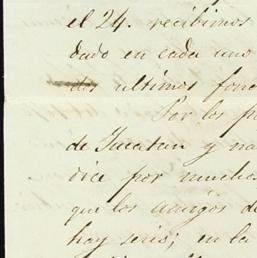 el 24. recibimos
dado en cada uno
dos ultimos fond
Por los p
de Yucatan y na
dice por mucho
que los amigos de
hay seris; en la